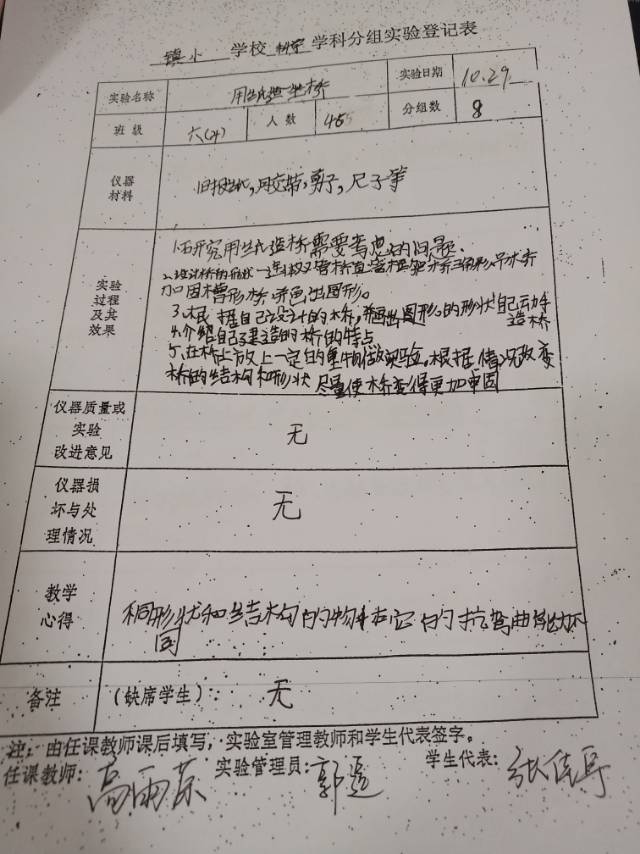 镇小 学校 科学 学科分组实验登记表
实验名称 用纸造座桥 实验日期 10.29
班级 六(4) 人数 45 分组数 8
仪器材料 旧报纸,胶带,剪子,尺子等
实验过程及其效果
1.研究用纸造桥需要考虑的问题.
2.设计桥的形状
加固 形桥 画出图形。
3.根据自己设计的桥,画出图形的形状自己动手造桥
4.介绍自己建造的桥的特点
5.在桥上放上一定的重物做实验。根据情况改变
桥的结构和形状 尽量使桥变得更加牢固
仪器质量或实验改进意见 无
仪器损坏与处理情况 无
教学心得 不同形状和结构的物体它的抗弯曲能力不同
备注 (缺席学生): 无
注:由任课教师课后填写,实验室管理教师和学生代表签字。
任课教师: 高雨 实验管理员: 郭 学生代表: 张佳